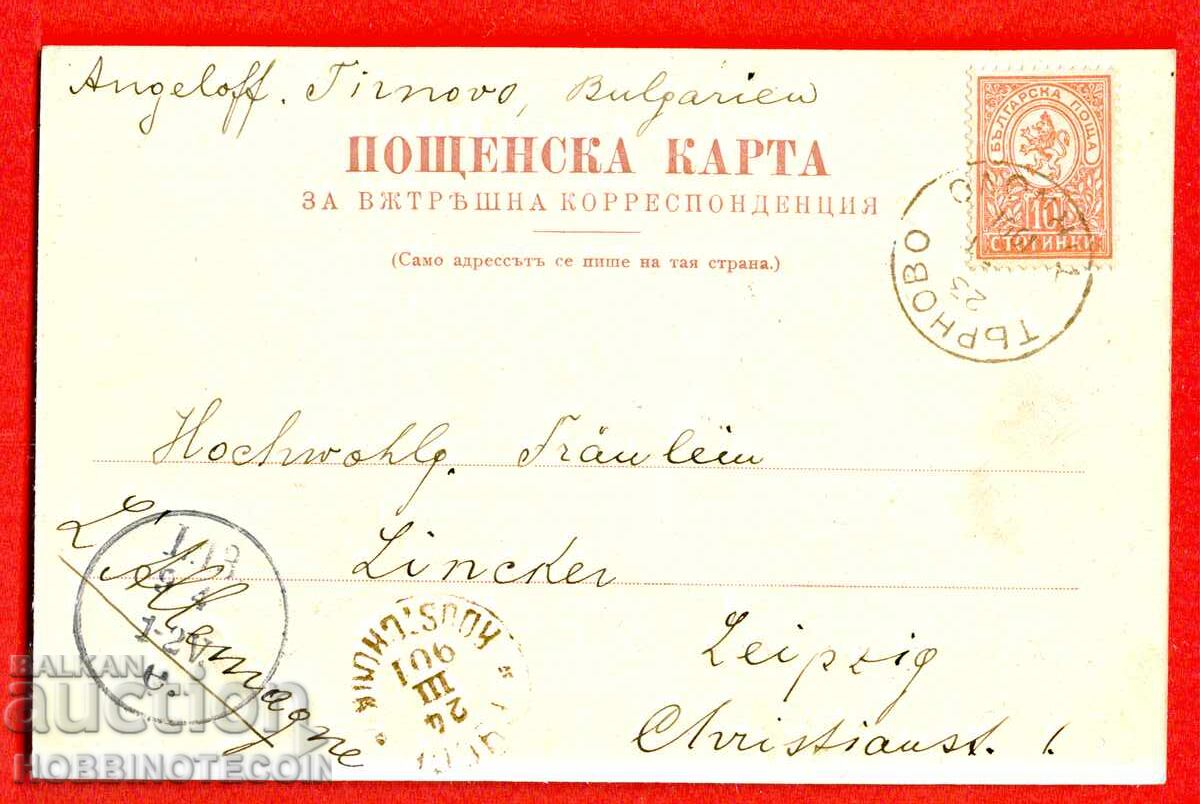 Angeloff. Tirnovo, Bulgarien
ПОЩЕНСКА КАРТА
ЗА ВѪТРѢШНА КОРРЕСПОНДЕНЦИЯ
(Само адрессътъ се пише на тая страна.)
БЪЛГАРСКА ПОЩА
10
СТОТИНКИ
ТЪРНОВО
23
Hochwohlg. Fräulein
Lincker
Leipzig
Christianst. 1
L'Allemagne
24
III
901
1-2
BALKAN
auction
HOBBINOTECOIN